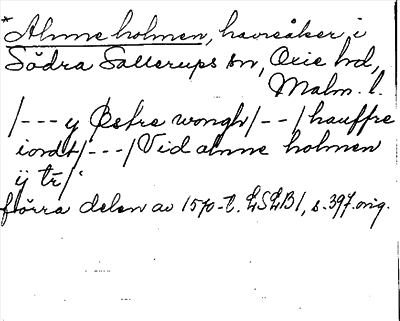 *Alnne holmen, havreåker i
Södra Sallerups sn, Oxie hd,
Malm. l.
/--- y Østre wongh/--/hauffre
iordt/---/Vid alnne holmen
ÿ tr̄/.
förra delen av 1570-t. LSLB1, s. 397. orig.